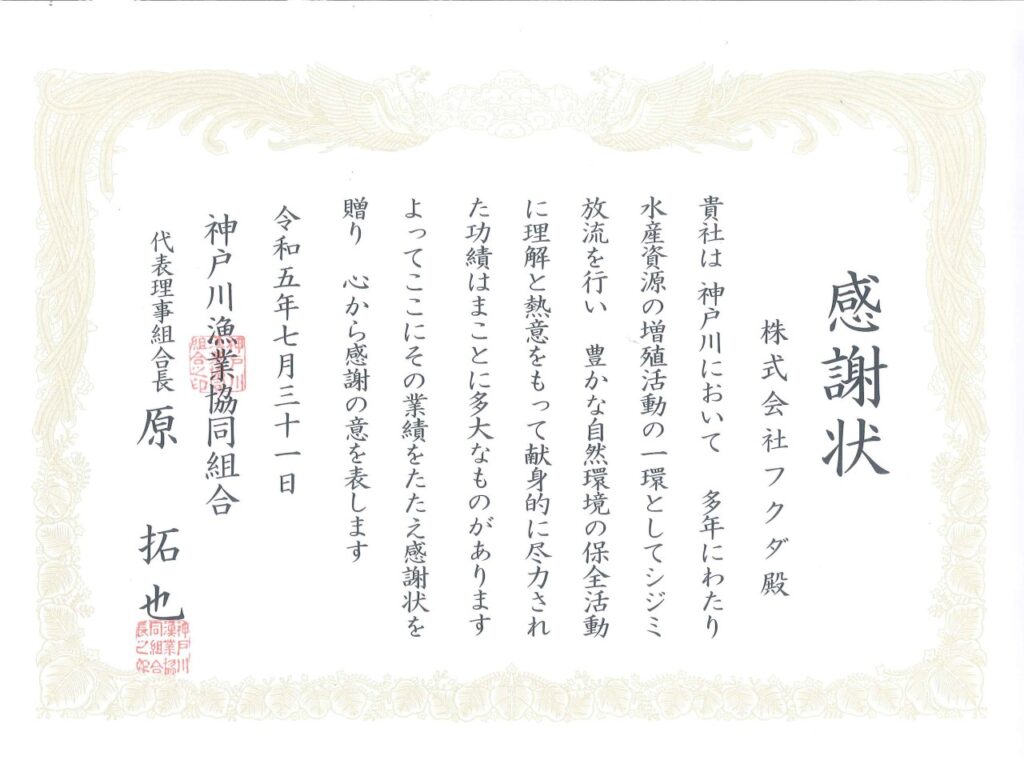 感謝状
株式会社フクダ殿
貴社は 神戸川において 多年にわたり
水産資源の増殖活動の一環としてシジミ
放流を行い 豊かな自然環境の保全活動
に理解と熱意をもって献身的に尽力され
た功績はまことに多大なものがあります
よってここにその業績をたたえ感謝状を
贈り 心から感謝の意を表します
令和五年七月三十一日
神戸川漁業協同組合
代表理事組合長 原 拓也
神戸川
漁業協
同組合
長之印